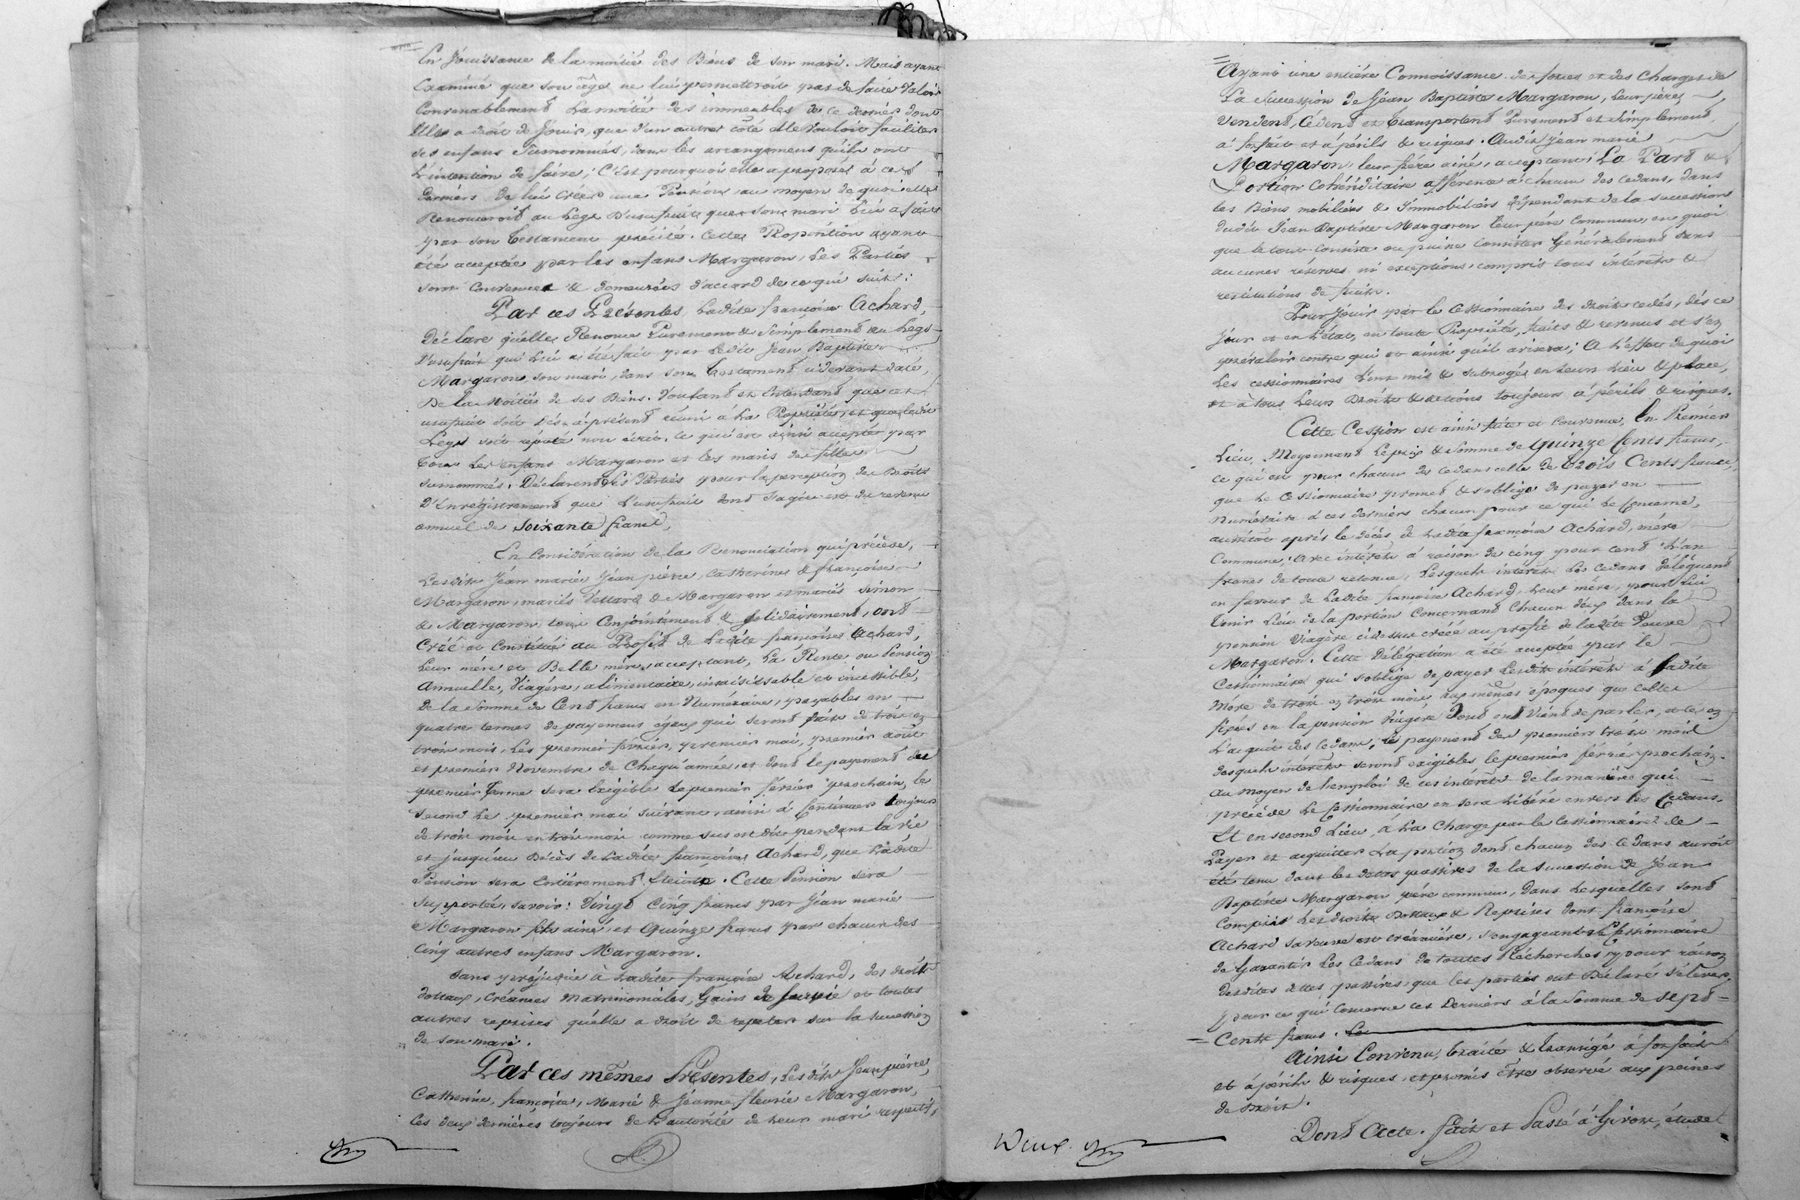 En Jouissance de la moitié des Biens de son mari. Mais ayant
Examiné que son âge ne lui permettroit pas de faire valoir
Convenablement la moitié des immeubles de ce dernier dont
Elle a droit de Jouir, que d'un autre côté elle vouloit faciliter
ses enfans surnommés, dans les arrangemens qu'ils ont
l'intention de faire; C'est pourquoi elle a proposé à ces
Derniers de lui créer une Pension au moyen de quoi elle
Renonceroit au Legs D'usufruit que son mari lui a fait
par son testament précité. Cette Proposition ayant
été acceptée par les enfans Margaron, Les Parties
sont Convenues & demeurées d'accord de ce qui suit:
Par ces Présentes, Ladite françoise Achard,
Déclare qu'elle Renonce Purement & Simplement au Legs
D'usufruit qui lui a été fait par Ledit Jean Baptiste
Margaron, son mari, dans son testament cidevant daté,
De la Moitié de ses Biens. Voulant et Entendant que cet
usufruit soit dès-à-présent réuni à La Propriété, et que ledit
Legs soit réputé non écrit. Ce qui est ainsi accepté par
tous Les enfans Margaron et les maris des filles
surnommés. Déclarent les Parties pour la perception des Droits
D'Enregistrement que L'usufruit dont s'agit est de revenu
annuel de soixante francs.
En Considération de la Renonciation qui précède,
Lesdits Jean marie, Jean pierre, Catherine & françoise
Margaron, mariés & Margaron et mariés Simon
& Margaron, tous Conjointement & solidairement, ont
Créé et Constitué au Profit de Ladite françoise Achard,
Leur mère et Belle mère, acceptant, La Rente ou Pension
Annuelle, Viagère, alimentaire, insaisissable et incessible,
De la Somme de Cent francs en Numéraire, payables en
quatre termes de payemens égaux qui seront faits de trois en
trois mois, Les premier février, premier mai, premier août
et premier Novembre de Chaque année, et dont le payement du
premier terme sera Exigible Le premier février prochain, le
second Le premier mai suivant, ainsi à Continuer toujours
de trois mois en trois mois comme sus est dit, pendant la vie
et jusqu'au Décès de Ladite françoise Achard, que Ladite
Pension sera Entièrement Eteinte. Cette Pension sera
supportée, savoir: Vingt Cinq francs par Jean marie
Margaron fils ainé, et Quinze francs par chacun des
Cinq autres enfans Margaron.
Sans préjudice à Ladite françoise Achard, des droits
dotaux, Créances Matrimoniales, Gains de survie et toutes
autres reprises qu'elle a droit de repeter sur la succession
de son mari.
Par ces mêmes Présentes, Lesdits Jean pierre,
Catherine, françoise, Marie & Jeanne fleurie Margaron,
Les deux dernières toujours de L'autorité de Leurs maris respectifs,
Ayant une entière Connoissance des forces et des Charges de
La Succession de Jean Baptiste Margaron, Leur père,
Vendent, Cèdent et transportent Purement et Simplement,
à forfait et à périls & risques. Audit Jean marie
Margaron, leur frère ainé, acceptant, La Part &
Portion Cohéréditaire afférente à chacun des cedans, dans
les Biens mobiliers & Immobiliers dépendant de la succession
dudit Jean Baptiste Margaron leur père Commun, en quoi
que le tout Consiste ou puisse Consister Généralement sans
aucunes réserves ni exceptions, compris tous intérêts &
restitutions de fruits.
Pour Jouir par le Cessionnaire des droits cédés, dès ce
jour et en l'état, en toute Propriété, fruits & revenus et s'en
prévaloir contre qui et ainsi qu'il avisera; A l'effet de quoi
Les cessionnaires L'ont mis & subrogé en Leur Lieu & place,
et à tous Leurs Droits & actions toujours à périls & risques.
Cette Cession est ainsi faite et Convenue, En Premier
Lieu, Moyennant Le prix & somme de Quinze Cents francs,
ce qui est pour chacun des Cedans celle de trois Cents francs,
que Le Cessionnaire promet & s'oblige de payer en
Numéraire à ces derniers chacun pour ce qui Le Concerne,
aussitôt après le décès de Ladite françoise Achard, mere
Commune, avec intérêts à raison de cinq pour cent L'an
francs de toute retenue, Lesquels intérêts Les Cedans déléguent
en faveur de Ladite françoise Achard, Leur mère, pour lui
tenir Lieu de la portion Concernant Chacun d'eux dans la
pension Viagère ci dessus créée au profit de ladite Veuve
Margaron. Cette Délégation a été acceptée par le
Cessionnaire qui s'oblige de payer Lesdits intérêts à Ladite
Mere de trois en trois mois, aux mêmes époques que celles
fixées en la pension Viagère Dont on Vient de parler, et ce en
L'acquit des Cedans, Le payement des premiers trois mois
desquels intérêts seront exigibles le premier février prochain.
au moyen de l'emploi de ces intérêts de la manière qui
précède Le Cessionnaire en sera Libéré envers les Cedans.
Et en second Lieu, à La Charge par le Cessionnaire de
Payer et acquitter La portion dont chacun des Cedans auroit
été tenu dans les dettes passives de la succession de Jean
Baptiste Margaron père commun, Dans Lesquelles sont
Compris Les droits Dotaux & Reprises dont françoise
Achard sa veuve est créancière, s'engageant Le Cessionnaire
de Garantir Les Cedans de toutes Recherches pour raison
desdites dettes passives, que les parties ont Déclaré s'élever,
pour ce qui Concerne ces Derniers à la Somme de sept
Cents francs.
Ainsi Convenu, traité & transigé à forfait
et à périls & risques, et promis être observé aux peines
de Droit.
Dont Acte. fait et Passé à Givors, étude
Deux.